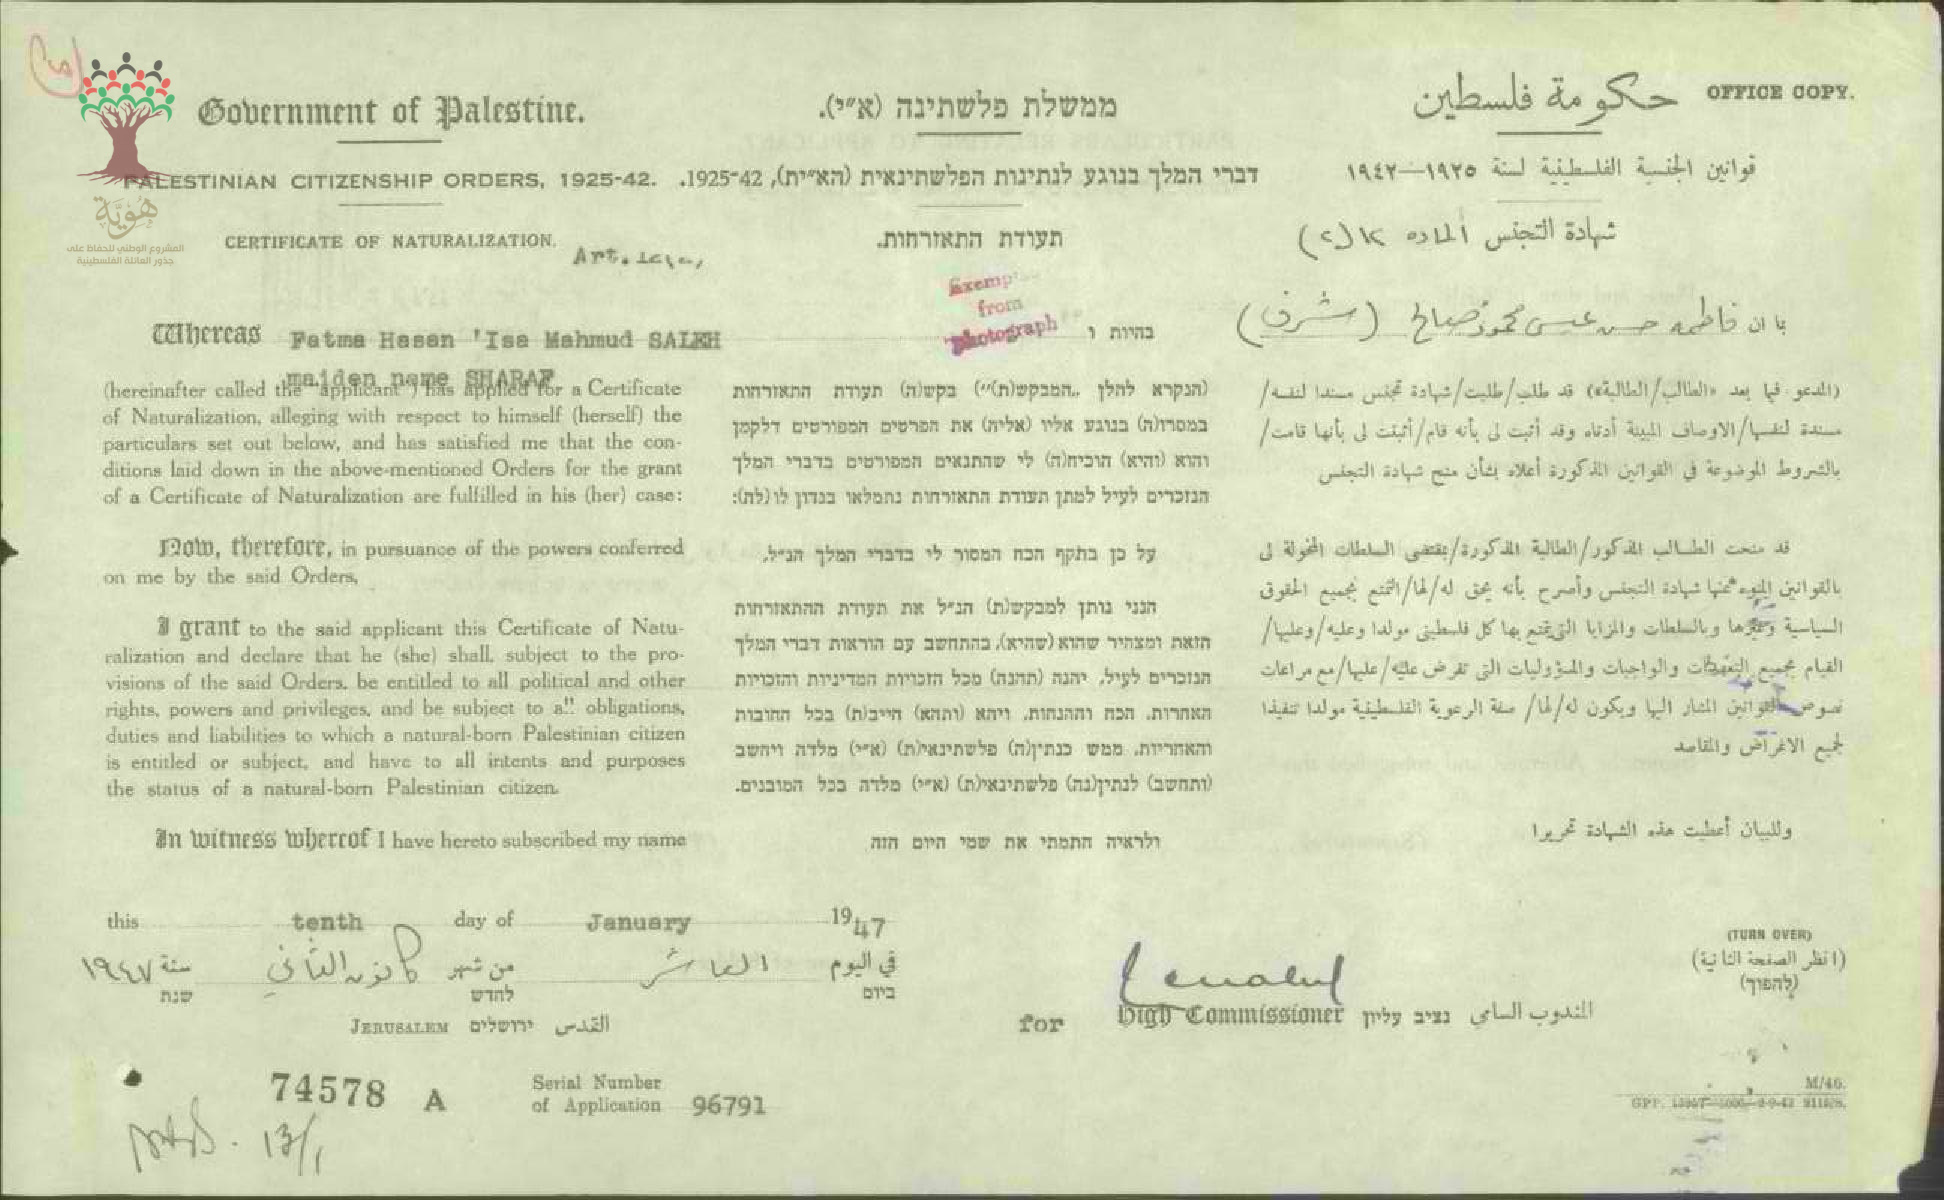 OFFICE COPY.
Government of Palestine.
ממשלת פלשתינה (א״י).
حكومة فلسطين
PALESTINIAN CITIZENSHIP ORDERS, 1925-42.
דברי המלך בנוגע לנתינות הפלשתינאית (הא״ית), 1925-42.
قوانين الجنسية الفلسطينية لسنة ١٩٢٥—١٩٤٢
هُوِيَّة
المشروع الوطني للحفاظ على
جذور العائلة الفلسطينية
CERTIFICATE OF NATURALIZATION.
Art.
תעודת התאזרחות.
شهادة التجنس المادة
Exemp
from
photograph
Whereas Fatma Hasan 'Isa Mahmud SALEH
maiden name SHARAF
(hereinafter called the "applicant") has applied for a Certificate
of Naturalization, alleging with respect to himself (herself) the
particulars set out below, and has satisfied me that the con-
ditions laid down in the above-mentioned Orders for the grant
of a Certificate of Naturalization are fulfilled in his (her) case:
Now, therefore, in pursuance of the powers conferred
on me by the said Orders,
I grant to the said applicant this Certificate of Natu-
ralization and declare that he (she) shall, subject to the pro-
visions of the said Orders, be entitled to all political and other
rights, powers and privileges, and be subject to all obligations,
duties and liabilities to which a natural-born Palestinian citizen
is entitled or subject, and have to all intents and purposes
the status of a natural-born Palestinian citizen.
In witness whereof I have hereto subscribed my name
בהיות ו
(הנקרא להלן „המבקש(ת)״) בקש(ה) תעודת התאזרחות
במסרו(ה) בנוגע אליו (אליה) את הפרטים המפורטים דלקמן
והוא (והיא) הוכיח(ה) לי שהתנאים המפורטים בדברי המלך
הנזכרים לעיל למתן תעודת התאזרחות נתמלאו בנדון לו (לה):
על כן בתקף הכח המסור לי בדברי המלך הנ״ל,
הנני נותן למבקש(ת) הנ״ל את תעודת ההתאזרחות
הזאת ומצהיר שהוא (שהיא), בהתחשב עם הוראות דברי המלך
הנזכרים לעיל, יהנה (תהנה) מכל הזכויות המדיניות והזכויות
האחרות, הכח וההנחות, ויהא (ותהא) חייב(ת) בכל החובות
והאחריות, ממש כנתין(ה) פלשתינאי(ת) (א״י) מלדה ויחשב
(ותחשב) לנתין(נה) פלשתינאי(ת) (א״י) מלדה בכל המובנים.
ולראיה חתמתי את שמי היום הזה
بما ان فاطمه حسن عيسى محمود صالح (شرف)
(المدعو فيما بعد «الطالب/الطالبة») قد طلب/طلبت/شهادة تجنس مسندا لنفسه/
مسندة لنفسها/الاوصاف المبينة أدناه وقد أثبت لي بأنه قام/أثبتت لي بأنها قامت/
بالشروط الموضوعة في القوانين المذكورة أعلاه بشأن منح شهادة التجنس
قد منحت الطالب المذكور/الطالبة المذكورة/بمقتضى السلطات المخولة لي
بالقوانين المنوه عنها شهادة التجنس وأصرح بأنه يحق له/لها/التمتع بجميع الحقوق
السياسية وغيرها وبالسلطات والمزايا التي يتمتع بها كل فلسطيني مولدا وعليه/وعليها/
القيام بجميع التعهدات والواجبات والمسؤوليات التي تفرض عليه/عليها/مع مراعات
نصوص القوانين المشار اليها ويكون له/لها/ صفة الرعوية الفلسطينية مولدا تنفيذا
لجميع الاغراض والمقاصد
وللبيان أعطيت هذه الشهادة تحريرا
this tenth day of January 1947
في اليوم العاشر من شهر كانون الثاني سنة ١٩٤٧
ביום לחדש שנת
JERUSALEM ירושלים القدس
for High Commissioner נציב עליון المندوب السامي
(TURN OVER)
(انظر الصفحة الثانية)
(להפוך)
74578 A
Serial Number
of Application 96791
13/1
M/46.